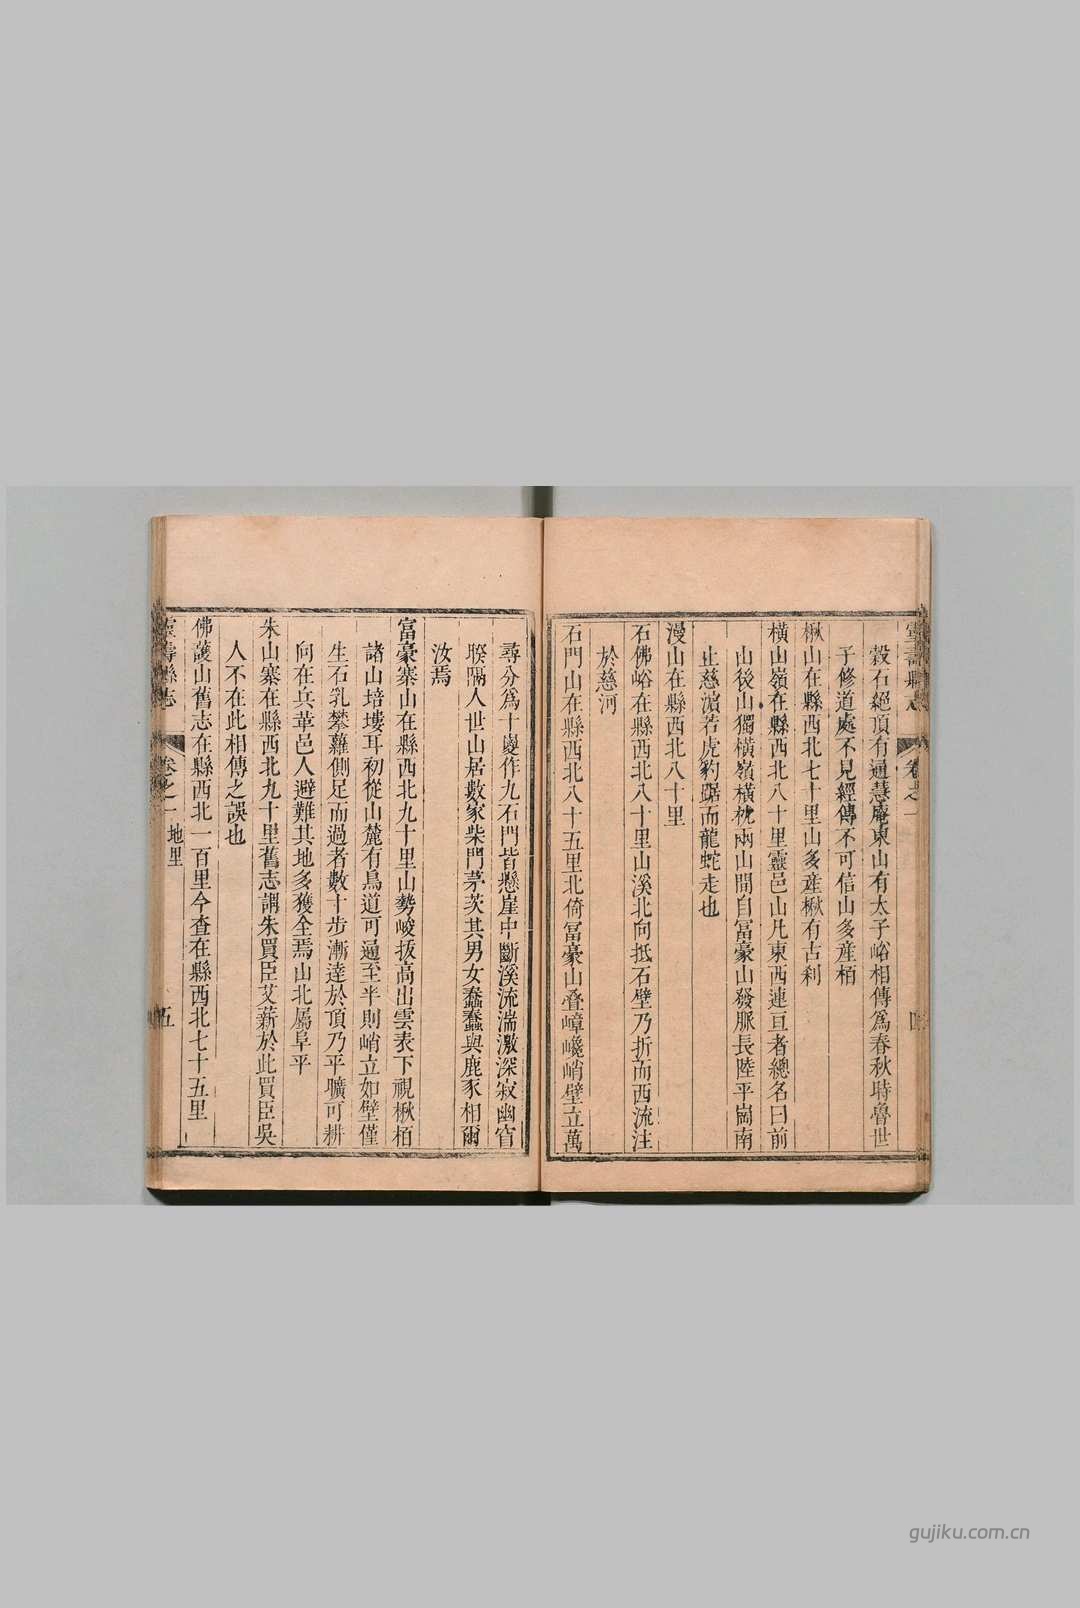 靈壽縣志
卷之一
穀石絕頂有通慧庵東山有太子峪相傳爲春秋時魯世
子修道處不見經傳不可信山多產栢
楸山在縣西北七十里山多產楸有古刹
橫山嶺在縣西北八十里靈邑山凡東西連亘者總名曰前
山後山獨橫嶺橫枕兩山閒自冨豪山發脈長陸平崗南
止慈濵若虎豹踞而龍蛇走也
漫山在縣西北八十里
石佛峪在縣西北八十里山溪北向抵石壁乃折而西流注
於慈河
石門山在縣西北八十五里北倚冨豪山疊嶂巉峭壁立萬
尋分爲十處作九石門皆懸崖中斷溪流湍激深寂幽窅
暌隔人世山居數家柴門茅茨其男女蠢蠢與鹿豕相爾
汝焉
富豪寨山在縣西北九十里山勢峻拔高出雲表下視楸栢
諸山培塿耳初從山麓有鳥道可通至半則峭立如壁僅
生石乳攀蘿側足而過者數十步漸達於頂乃平曠可耕
向在兵革邑人避難其地多獲全焉山北屬阜平
朱山寨在縣西北九十里舊志謂朱買臣艾薪於此買臣吳
人不在此相傳之誤也
佛護山舊志在縣西北一百里今查在縣西北七十五里
靈壽縣志
卷之一 地里
五
gujiku.com.cn